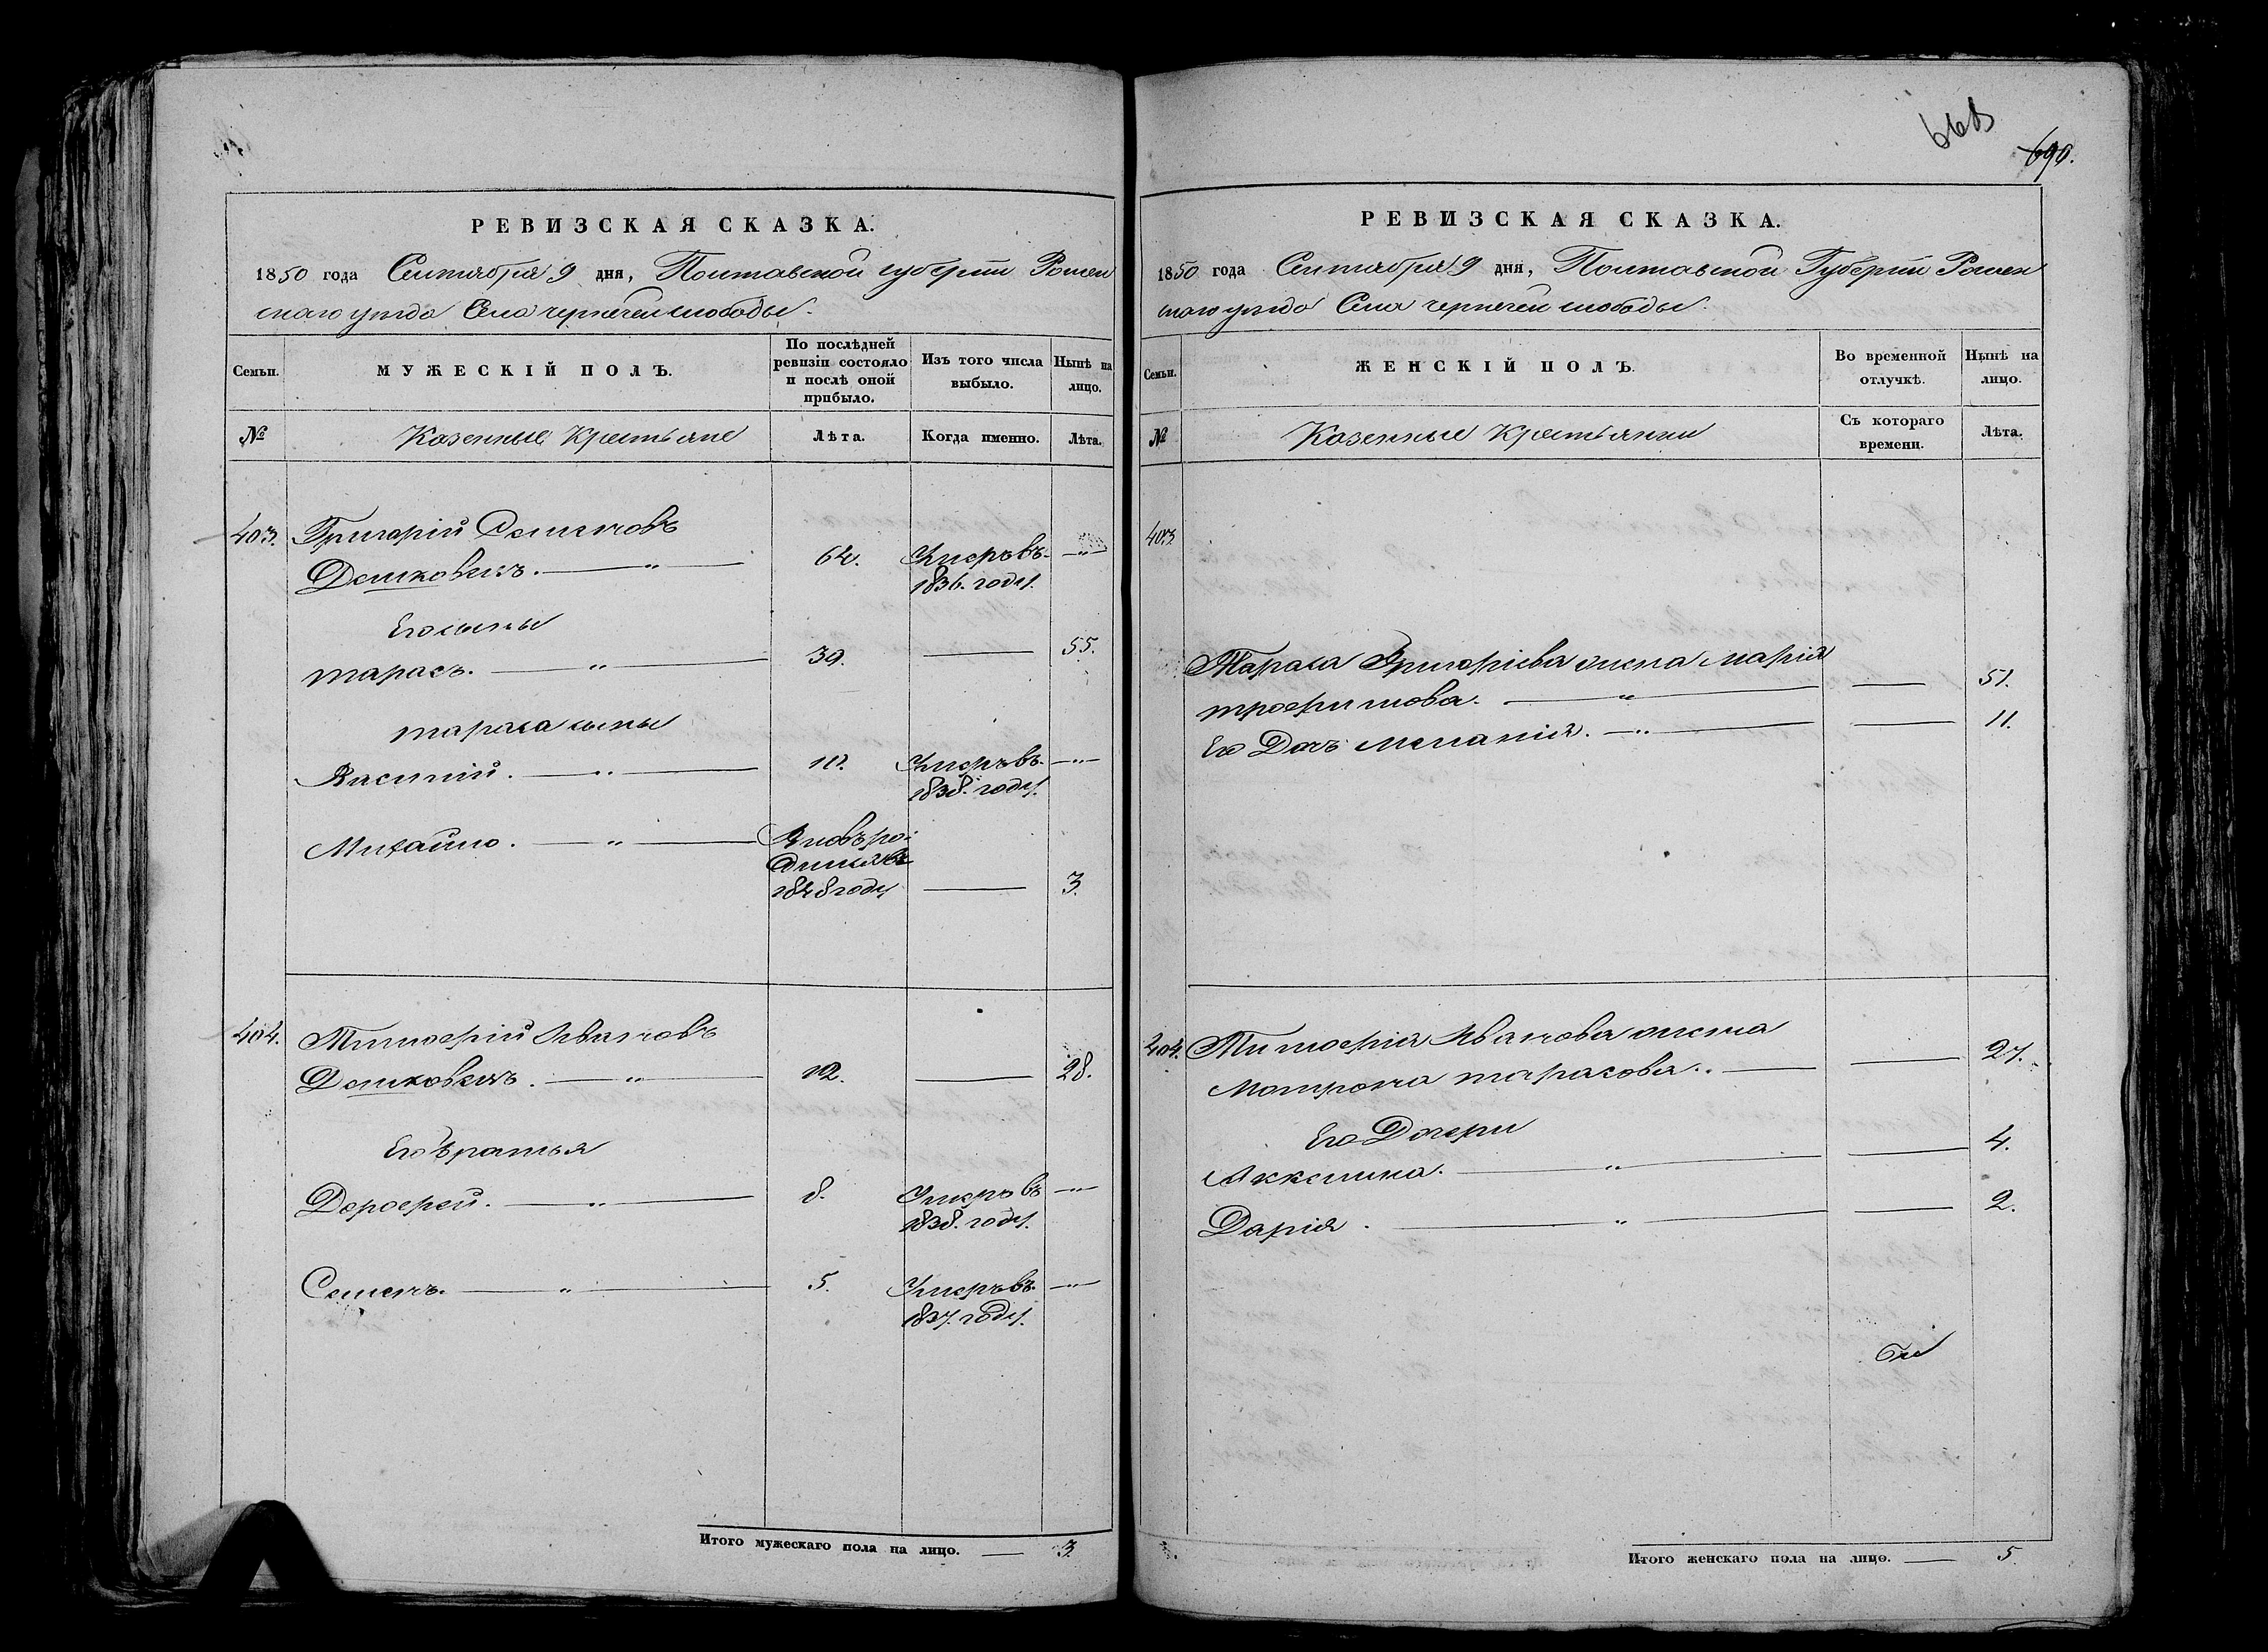 668
690.
РЕВИЗСКАЯ СКАЗКА.
1850 года Сентября 9 дня, Полтавской губерніи Ромен
скаго уѣзда Села чернечей слободы.
Семьи.
МУЖЕСКІЙ ПОЛЪ.
По послѣдней ревизіи состояло и послѣ оной прибыло.
Изъ того числа выбыло.
Нынѣ на лицо.
№
Казенные Крестьяне
Лѣта.
Когда именно.
Лѣта.
403. Григорій Семеновъ
Демковецъ. — " — 62. Умеръ въ — " —
1836. году.
Его сыны
тарасъ. — " — 39. — 55.
тараса сыны
Василій. — " — 10. Умеръ въ — " —
1838. году.
Михайло. — " — Вновь ро-
дился въ
1848 году — 3.
404. Тимоѳей Ивановъ
Демковецъ. — " — 12. — 28.
Его братья
Дороѳей. — " — 8. Умеръ въ — " —
1838. году.
Семенъ. — " — 5. Умеръ въ — " —
1837. году.
Итого мужескаго пола на лицо. — 3.
РЕВИЗСКАЯ СКАЗКА.
1850 года Сентября 9 дня, Полтавской Губерніи Ромен
скаго уѣзда Села чернечей слободы.
Семьи.
ЖЕНСКІЙ ПОЛЪ.
Во временной отлучкѣ.
Нынѣ на лицо.
№
Казенные Крестьянки
Съ котораго времени.
Лѣта.
403
Тараса Григоріева жена Марія
трофимова. — " — — 51.
Его Дочь Меланія. — " — — 11.
404. Тимоѳея Иванова жена
Мотрона тарасова. — — 27.
Его Дочери
Акксинία. — " — — 4.
Дарія. — " — — 2.
Итого женскаго пола на лицо. — 5